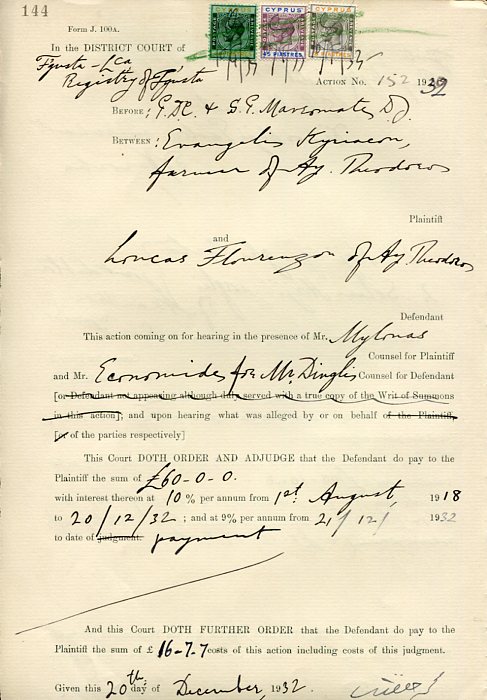 144
Form J. 100A.
CYPRUS CYPRUS
45 PIASTRES
In the DISTRICT COURT of
F'gusta - L'Ca
Registry of F'gusta
ACTION No. 152 1932
BEFORE: P.D.C. & S.G. Marcomates D.J.
BETWEEN: Evangelis Kyriacou,
farmer of Ay. Theodoros
Plaintiff
and
Loucas Flourenzou of Ay. Theodoros
Defendant
This action coming on for hearing in the presence of Mr. Mylonas
Counsel for Plaintiff
and Mr. Economides for Mr. Dinglis Counsel for Defendant
[or Defendant not appearing although duly served with a true copy of the Writ of Summons
in this action]; and upon hearing what was alleged by or on behalf of the Plaintiff,
[or of the parties respectively]
This Court DOTH ORDER AND ADJUDGE that the Defendant do pay to the
Plaintiff the sum of £60-0-0.
with interest thereon at 10% per annum from 1st August, 1918
to 20/12/32; and at 9% per annum from 21/12/ 1932
to date of judgment. payment
And this Court DOTH FURTHER ORDER that the Defendant do pay to the
Plaintiff the sum of £ 16-7-7 costs of this action including costs of this judgment.
Given this 20th day of December, 1932.